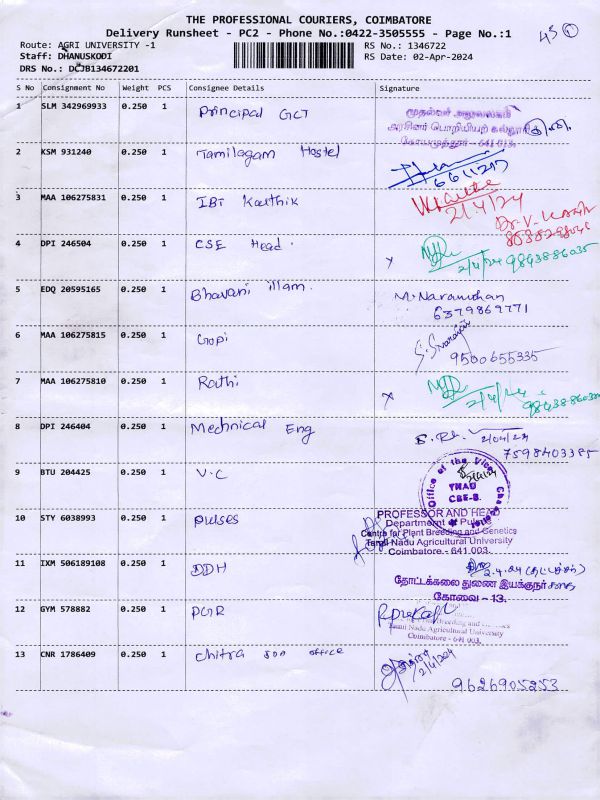 THE PROFESSIONAL COURIERS, COIMBATORE
Delivery Runsheet - PC2 - Phone No.:0422-3505555 - Page No.:1
45 1
Route: AGRI UNIVERSITY -1 RS No.: 1346722
Staff: DHANUSKODI RS Date: 02-Apr-2024
DRS No.: DCJB134672201
S No Consignment No Weight PCS Consignee Details Signature
1 SLM 342969933 0.250 1 Principal GCT
முதல்வர் அலுவலகம்
அரசினர் பொறியியற் கல்லூரி
கோயமுத்தூர் - 641 013.
2 KSM 931240 0.250 1 Tamilagam Hostel
3 MAA 106275831 0.250 1 IBT Karthik
2/4/24
Dr. V.
4 DPI 246504 0.250 1 CSE Head.
x 2/4/24 9843886035
5 EDQ 20595165 0.250 1 Bhavani illam.
6379869771
6 MAA 106275815 0.250 1 Gopi
9500655335
7 MAA 106275810 0.250 1 Rathi
x 2/4/24 9843886035
8 DPI 246404 0.250 1 Mechnical Eng
2/04/24
7598403385
9 BTU 204425 0.250 1 V.C
Office of the Vice Chancellor
TNAU
CBE-3.
10 STY 6038993 0.250 1 pulses
PROFESSOR AND HEAD
Department of Pulses
Centre for Plant Breeding and Genetics
Tamil Nadu Agricultural University
Coimbatore - 641 003.
11 IXM 506189108 0.250 1 DDH
2.4.24
தோட்டக்கலை துணை இயக்குநர்
கோவை - 13.
12 GYM 578882 0.250 1 PGR
Breeding and
Tamil Nadu Agricultural University
Coimbatore - 641 003.
13 CNR 1786409 0.250 1 Chitra office
2/4/204
9626905253